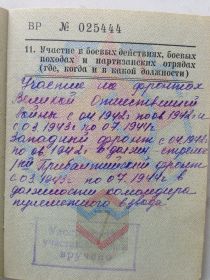 ВР № 025444
11. Участие в боевых действиях, боевых
походах и партизанских отрядах
(где, когда и в какой должности)
Участие на фронтах
Великой Отечественной
войны с 04.1942 г. по 08.1942 г. и
с 03.1943 г. по 07.1944 г.
Западный фронт с 04.1942
по 08.1942 г. в должн. стрелка
Прибалтийский фронт
с 03.1943 г. по 07.1944 г. в
должности командира
пулеметного взвода.
Удостоверение
участника
вручено